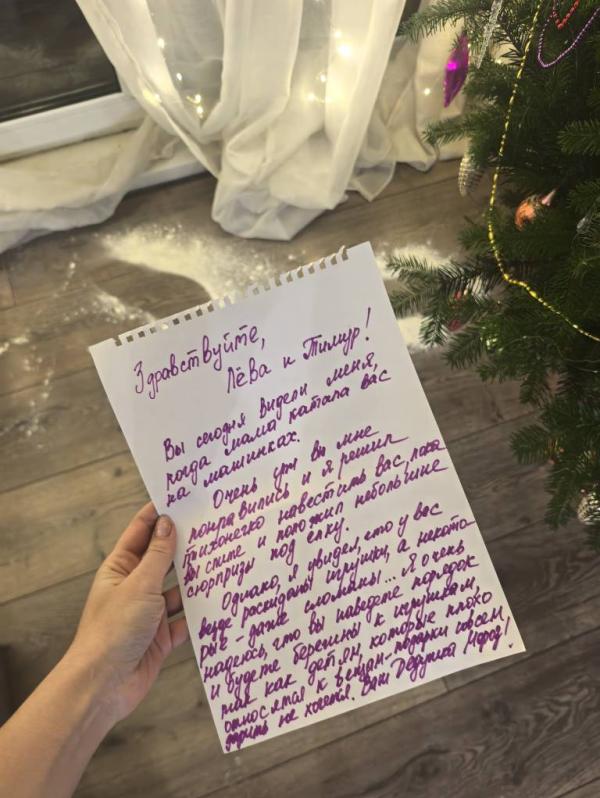 Здравствуйте,
Лёва и Тимур!
Вы сегодня видели меня,
когда мама катала вас
на машинках.
Очень уж вы мне
понравились и я решил
тихонечко навестить вас, пока
вы спите и положил небольшие
сюрпризы под ёлку.
Однако, я увидел, что у вас
везде раскиданы игрушки, а некото
рые - даже сломаны... Я очень
надеюсь, что вы наведете порядок
и будете бережны к игрушкам,
так как детям, которые плохо
относятся к вещам - подарки совсем
дарить не хочется. Ваш Дедушка Мороз!